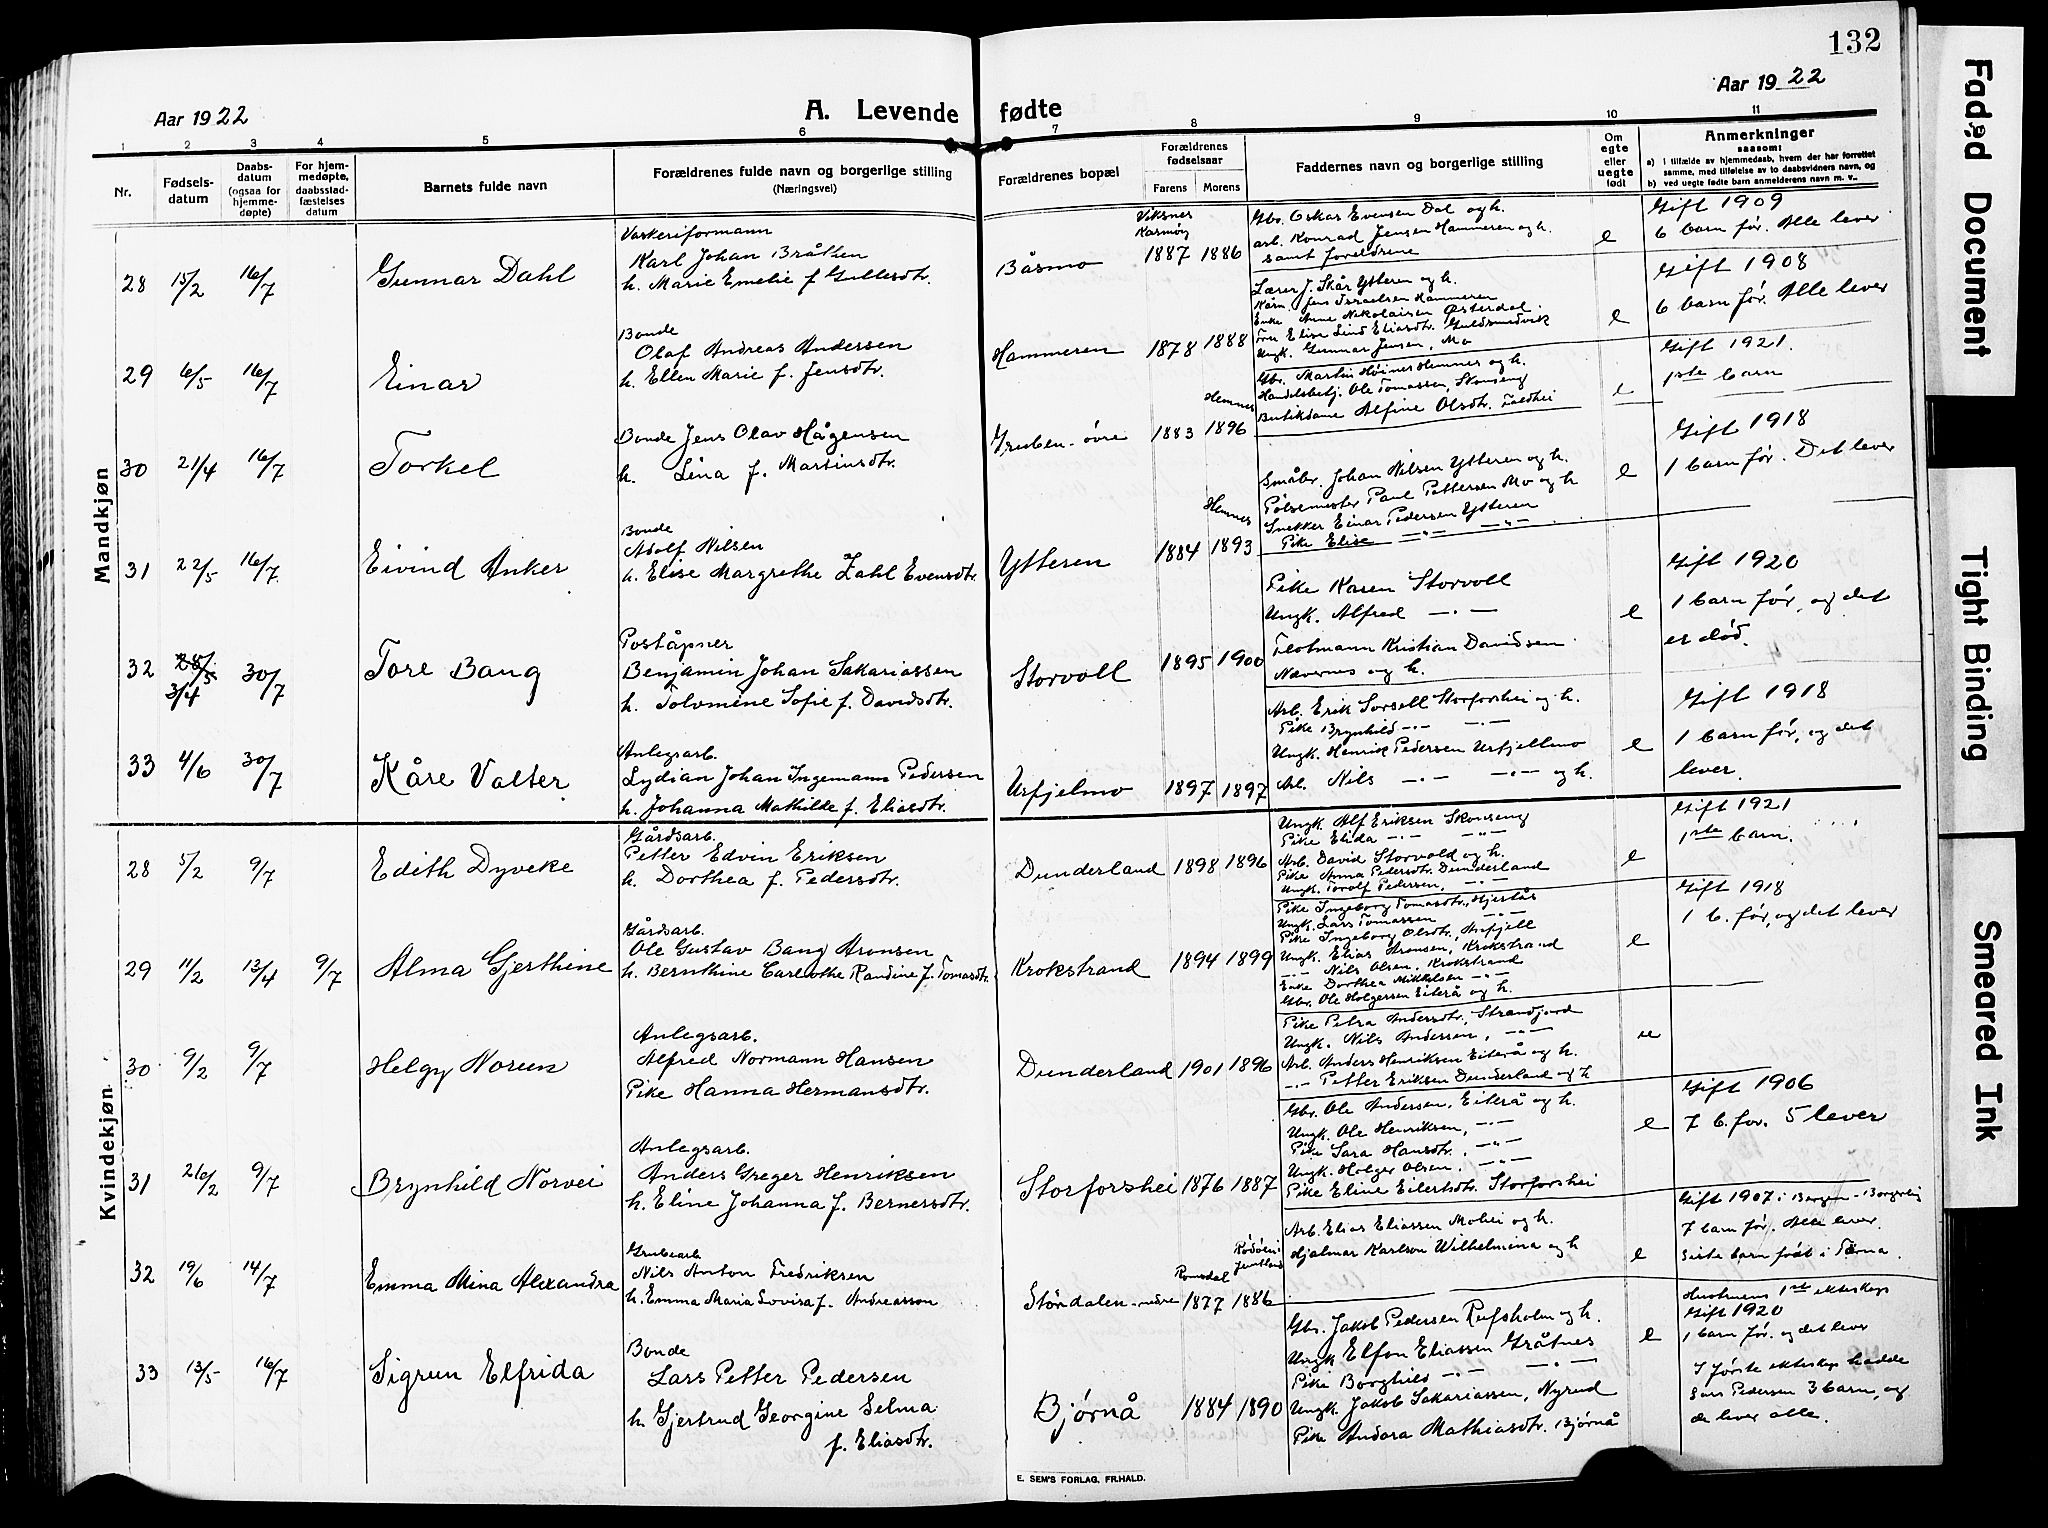 132
Aar 1922
A. Levende fødte
Aar 1922
1 2 3 4 5 6 7 8 9 10 11
Nr.
Fødsels-datum
Daabs-datum (ogsaa for hjemme-døpte)
For hjem-medøpte, daabsstad-fæstelses datum
Barnets fulde navn
Forældrenes fulde navn og borgerlige stilling
(Næringsvei)
Forældrenes bopæl
Forældrenes fødselsaar
Farens Morens
Faddernes navn og borgerlige stilling
Om egte eller uegte født
Anmerkninger
saasom:
a) i tilfælde av hjemmedaab, hvem der har forrettet samme, med tilføielse av to daabsvidners navn, og
b) ved uegte fødte barn anmelderens navn m. v..
Mandkjøn
28 15/2 16/7 Gunnar Dahl
Vaskeriformann
Karl Johan Bråthen
h. Marie Emelie f. Gullesdtr.
Båsmo
Viksnes
Karmøy
1887 1886
Gbr. Oskar Evensen Dal og h.
arb. Konrad Jensen Hammeren og h.
samt foreldrene
e
Gift 1909
6 barn før. Alle lever
29 6/5 16/7 Einar
Bonde
Olaf Andreas Andersen
h. Ellen Marie f. Jensdtr.
Hammeren 1878 1888
Lærer J. Skår Ytteren og h.
Kårm. Jens Israelsen Hammeren
Enke Anne Nikolaisen Østerdal
Fru Elise Lind Eliasdtr. Guldsmedvik
Ungk. Gunnar Jensen, Mo
e
Gift 1908
6 barn før. Alle lever
30 21/4 16/7 Torkel
Bonde Jens Olav Hågensen
h. Lina f. Martinsdtr.
Gruben-øvre
Hemnes
1883 1896
Gbr. Martin Høines Hemnes og h.
Handelsbetj. Ole Tomassen, Skonseng
Butikdame Alfine Olsdtr.
e
Gift 1921.
1ste barn
31 22/5 16/7 Eivind Anker
Bonde
Adolf Nilsen
h. Elise Margrethe Zahl Evensdtr.
Ytteren
Hemnes
1884 1893
Småbr. Johan Nilsen Ytteren og h.
Pølsemester Paul Pettersen Mo og h
Snekker Einar Pedersen Ytteren
Pike Elise —"— —"—
e
Gift 1918
1 barn før. Det lever
32 28/5 3/4 30/7 Tore Bang
Poståpner
Benjamin Johan Sakariassen
h. Tolomine Sofie f. Davidsdtr.
Storvoll 1895 1900
Pike Karen Storvoll
Ungk. Alfred —"—
Flotmann Kristian Davidsen
Nævernes og h.
e
Gift 1920
1 barn før, og det
er død.
33 4/6 30/7 Kåre Valter
Anlegsarb.
Lydian Johan Ingemann Pedersen
h. Johanna Mathilde f. Eliasdtr.
Urfjelmo 1897 1897
Arb. Erik Sorsell Storforshei og h.
Pike Brynhild —"— —"—
Ungk. Henrik Pedersen Urfjellmo
Arb. Nils —"— —"— og h.
e
Gift 1918
1 barn før, og det
lever.
Kvindekjøn
28 5/2 9/7 Edith Dyveke
Gårdsarb.
Petter Edvin Eriksen
h. Dorthea f. Pedersdtr.
Dunderland 1898 1896
Ungk. Alf Eriksen Skonseng
Pike Elida —"— —"—
Arb. David Storvold og h.
Pike Anna Pedersdtr. Dunderland
Ungk. Torolf Pedersen, —"—
e
Gift 1921
1ste barn.
29 11/2 13/4 9/7 Alma Gjerthine
Gårdsarb.
Ole Gustav Bang Aronsen
h. Bernthine Carlotte Randine f. Tomasdtr.
Krokstrand 1894 1899
Pike Ingeborg Tomasdtr., Hjertås
Ungk. Lars Tomassen —"—
Pike Ingeborg Olsdtr.,
Ungk. Elias Aronsen, Krokstrand
—"— Nils Olsen, Krokstrand
Enke Dorthea Mikkelsen —"—
Gbr. Ole Holgersen Eiterå og h.
e
Gift 1918
1 b. før, og det lever
30 9/2 9/7 Helgy Norun
Anlegsarb.
Alfred Normann Hansen
Pike Hanna Hermansdtr.
Dunderland 1901 1896
Pike Petra Andersdtr., Strandjord
Ungk. Nils Andersen, —"—
Arb. Anders Henriksen Eiterå og h.
—"— Petter Eriksen Dunderland og h
ue
31 26/2 9/7 Brynhild Norvei
Anlegsarb.
Anders Greger Henriksen
h. Eline Johanna f. Bernersdtr.
Storforshei 1876 1887
Gbr. Ole Andersen, Eiterå og h.
Ungk. Ole Henriksen, —"—
Pike Sara Hansdtr. —"—
Ungk. Holger Olsen, —"—
Pike Eline Eilertsdtr. Storforshei
e
Gift 1906
7 b. før. 5 lever
32 19/6 14/7 Emma Mina Alexandra
Grubearb
Nils Anton Fredriksen
h. Emma Maria Lovisa f. Andreasson
Stordalen-nedre
Romsdal
1877 1886
Arb. Elias Eliassen Mohei og h.
Hjalmar Karlson Wilhelmina og h
e
Gift 1907 i Bergen - Borgerlig
7 barn før. Alle lever.
Siste barn født i Tärna.
33 13/5 16/7 Sigrun Elfrida
Bonde
Lars Petter Pedersen
h. Gjertrud Georgine Selma
f. Eliasdtr.
Bjørnå 1884 1890
Gbr. Jakob Pedersen Refsholm og h.
Ungk Elfon Eliassen Gråtnes
Pike Borghild —"— —"—
Ungk. Jakob Sakariassen, Nyrud
Pike Andora Mathiasdtr. Bjørnå
e
Hustruens 1ste ekteskap
Gift 1920
1 barn før. og det lever
I første ekteskap hadde
Lars Pedersen 3 barn, og
de lever alle.
E. SEM'S FORLAG, FR.HALD.
Faded Document
Tight Binding
Smeared Ink